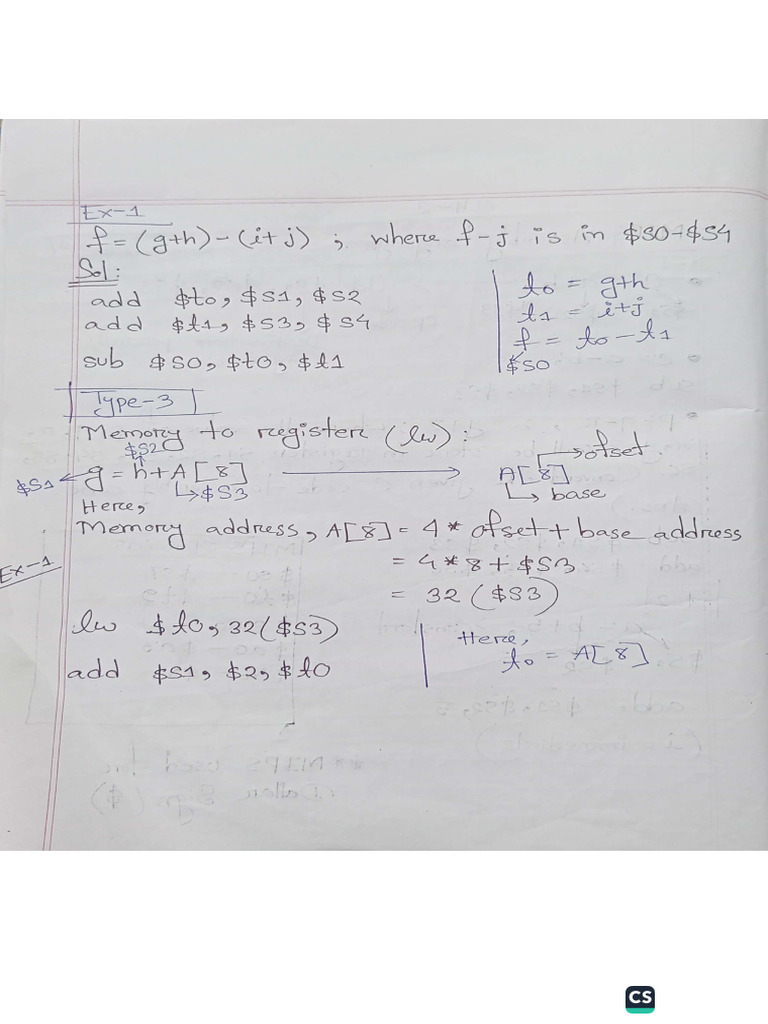 Ex-1
f = (g+h) - (i+j) ; where f-j is in $S0-$S4
Sol:
add $t0, $S1, $S2
add $t1, $S3, $S4
sub $S0, $t0, $t1
t0 = g+h
t1 = i+j
f = t0 - t1
$S0
Type-3
Memory to register (lw):
$S2
$S1 ← g = h + A[8] → A[8] → ofset
↳ $S3
↳ base
Here,
Memory address, A[8] = 4 * ofset + base address
Ex-1
= 4 * 8 + $S3
= 32 ($S3)
lw $t0, 32($S3)
add $S1, $2, $t0
Here,
t0 = A[8]
CS